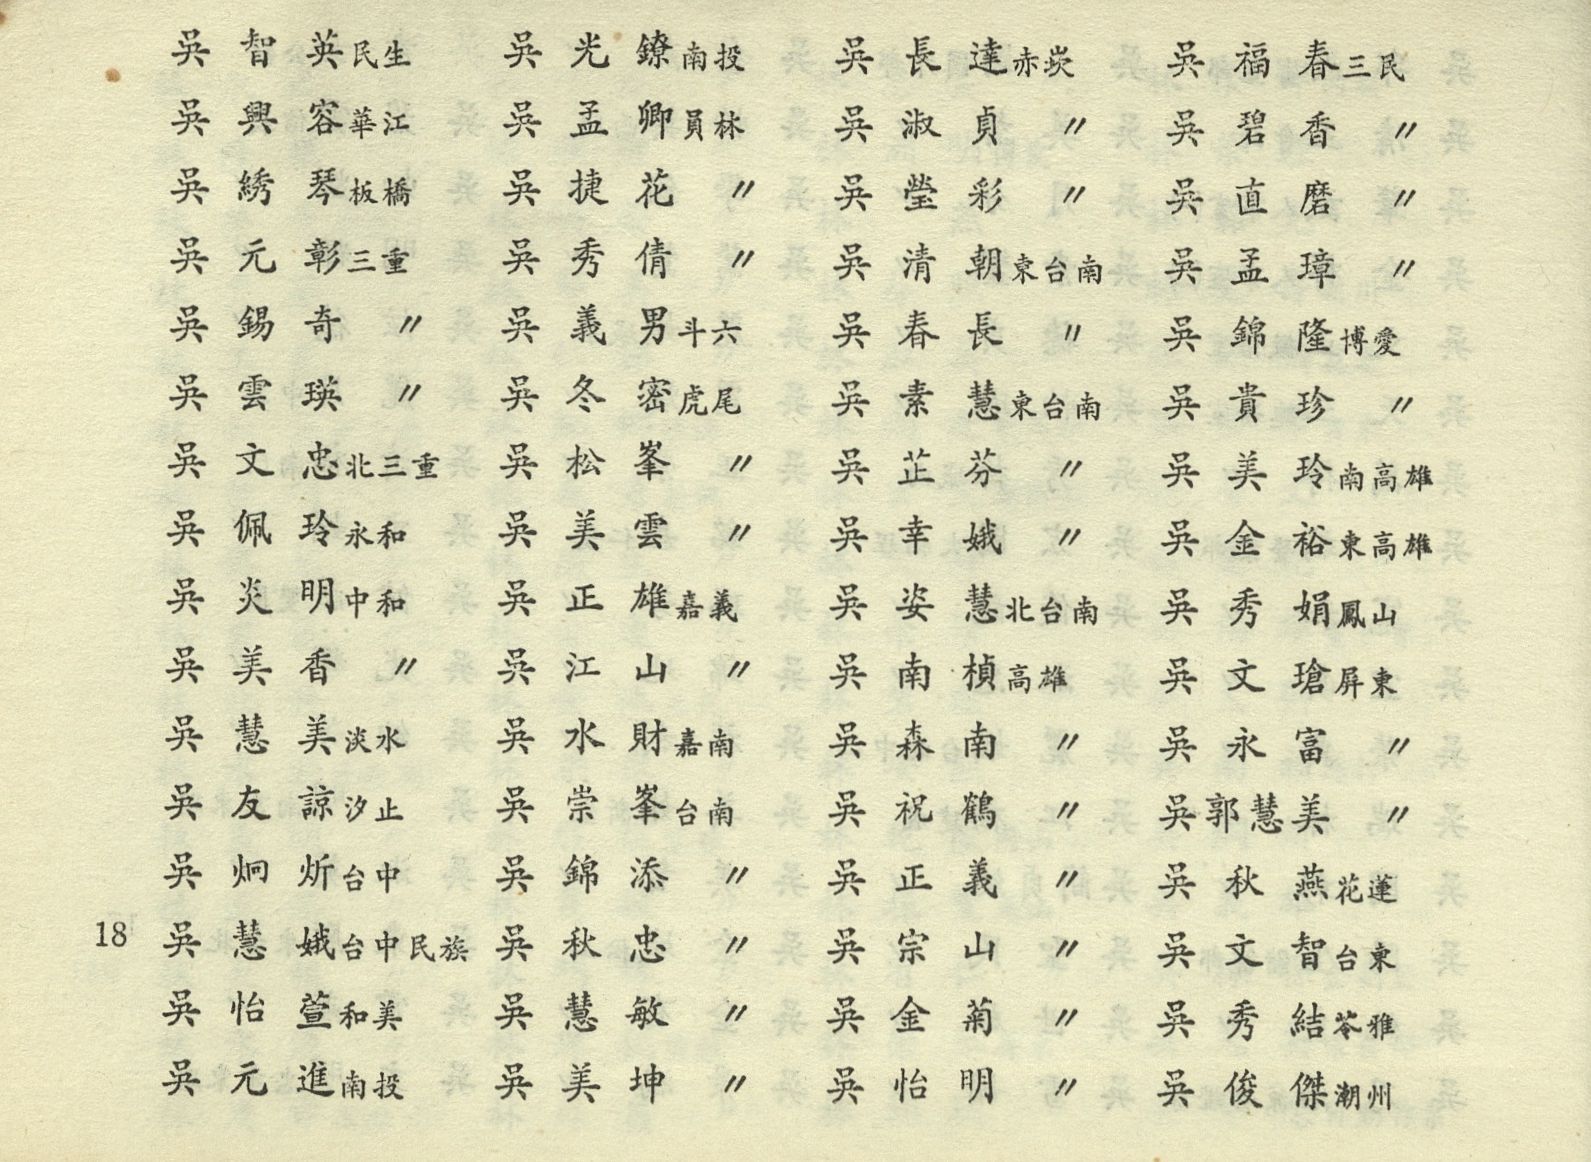 吳智英民生 吳光鐐南投 吳長達赤崁 吳福春三民
吳興容華江 吳孟卿員林 吳淑貞〃 吳碧香〃
吳綉琴板橋 吳捷花〃 吳瑩彩〃 吳直磨〃
吳元彰三重 吳秀倩〃 吳清朝東台南 吳孟璋〃
吳錫奇〃 吳義男斗六 吳春長〃 吳錦隆博愛
吳雲瑛〃 吳冬密虎尾 吳素慧東台南 吳貴珍〃
吳文忠北三重 吳松峯〃 吳芷芬〃 吳美玲南高雄
吳佩玲永和 吳美雲〃 吳幸娥〃 吳金裕東高雄
吳炎明中和 吳正雄嘉義 吳姿慧北台南 吳秀娟鳳山
吳美香〃 吳江山〃 吳南楨高雄 吳文瑲屏東
吳慧美淡水 吳水財嘉南 吳森南〃 吳永富〃
吳友諒汐止 吳崇峯台南 吳祝鶴〃 吳郭慧美〃
吳炯炘台中 吳錦添〃 吳正義〃 吳秋燕花蓮
18 吳慧娥台中民族 吳秋忠〃 吳宗山〃 吳文智台東
吳怡萱和美 吳慧敏〃 吳金菊〃 吳秀結苓雅
吳元進南投 吳美坤〃 吳怡明〃 吳俊傑潮州